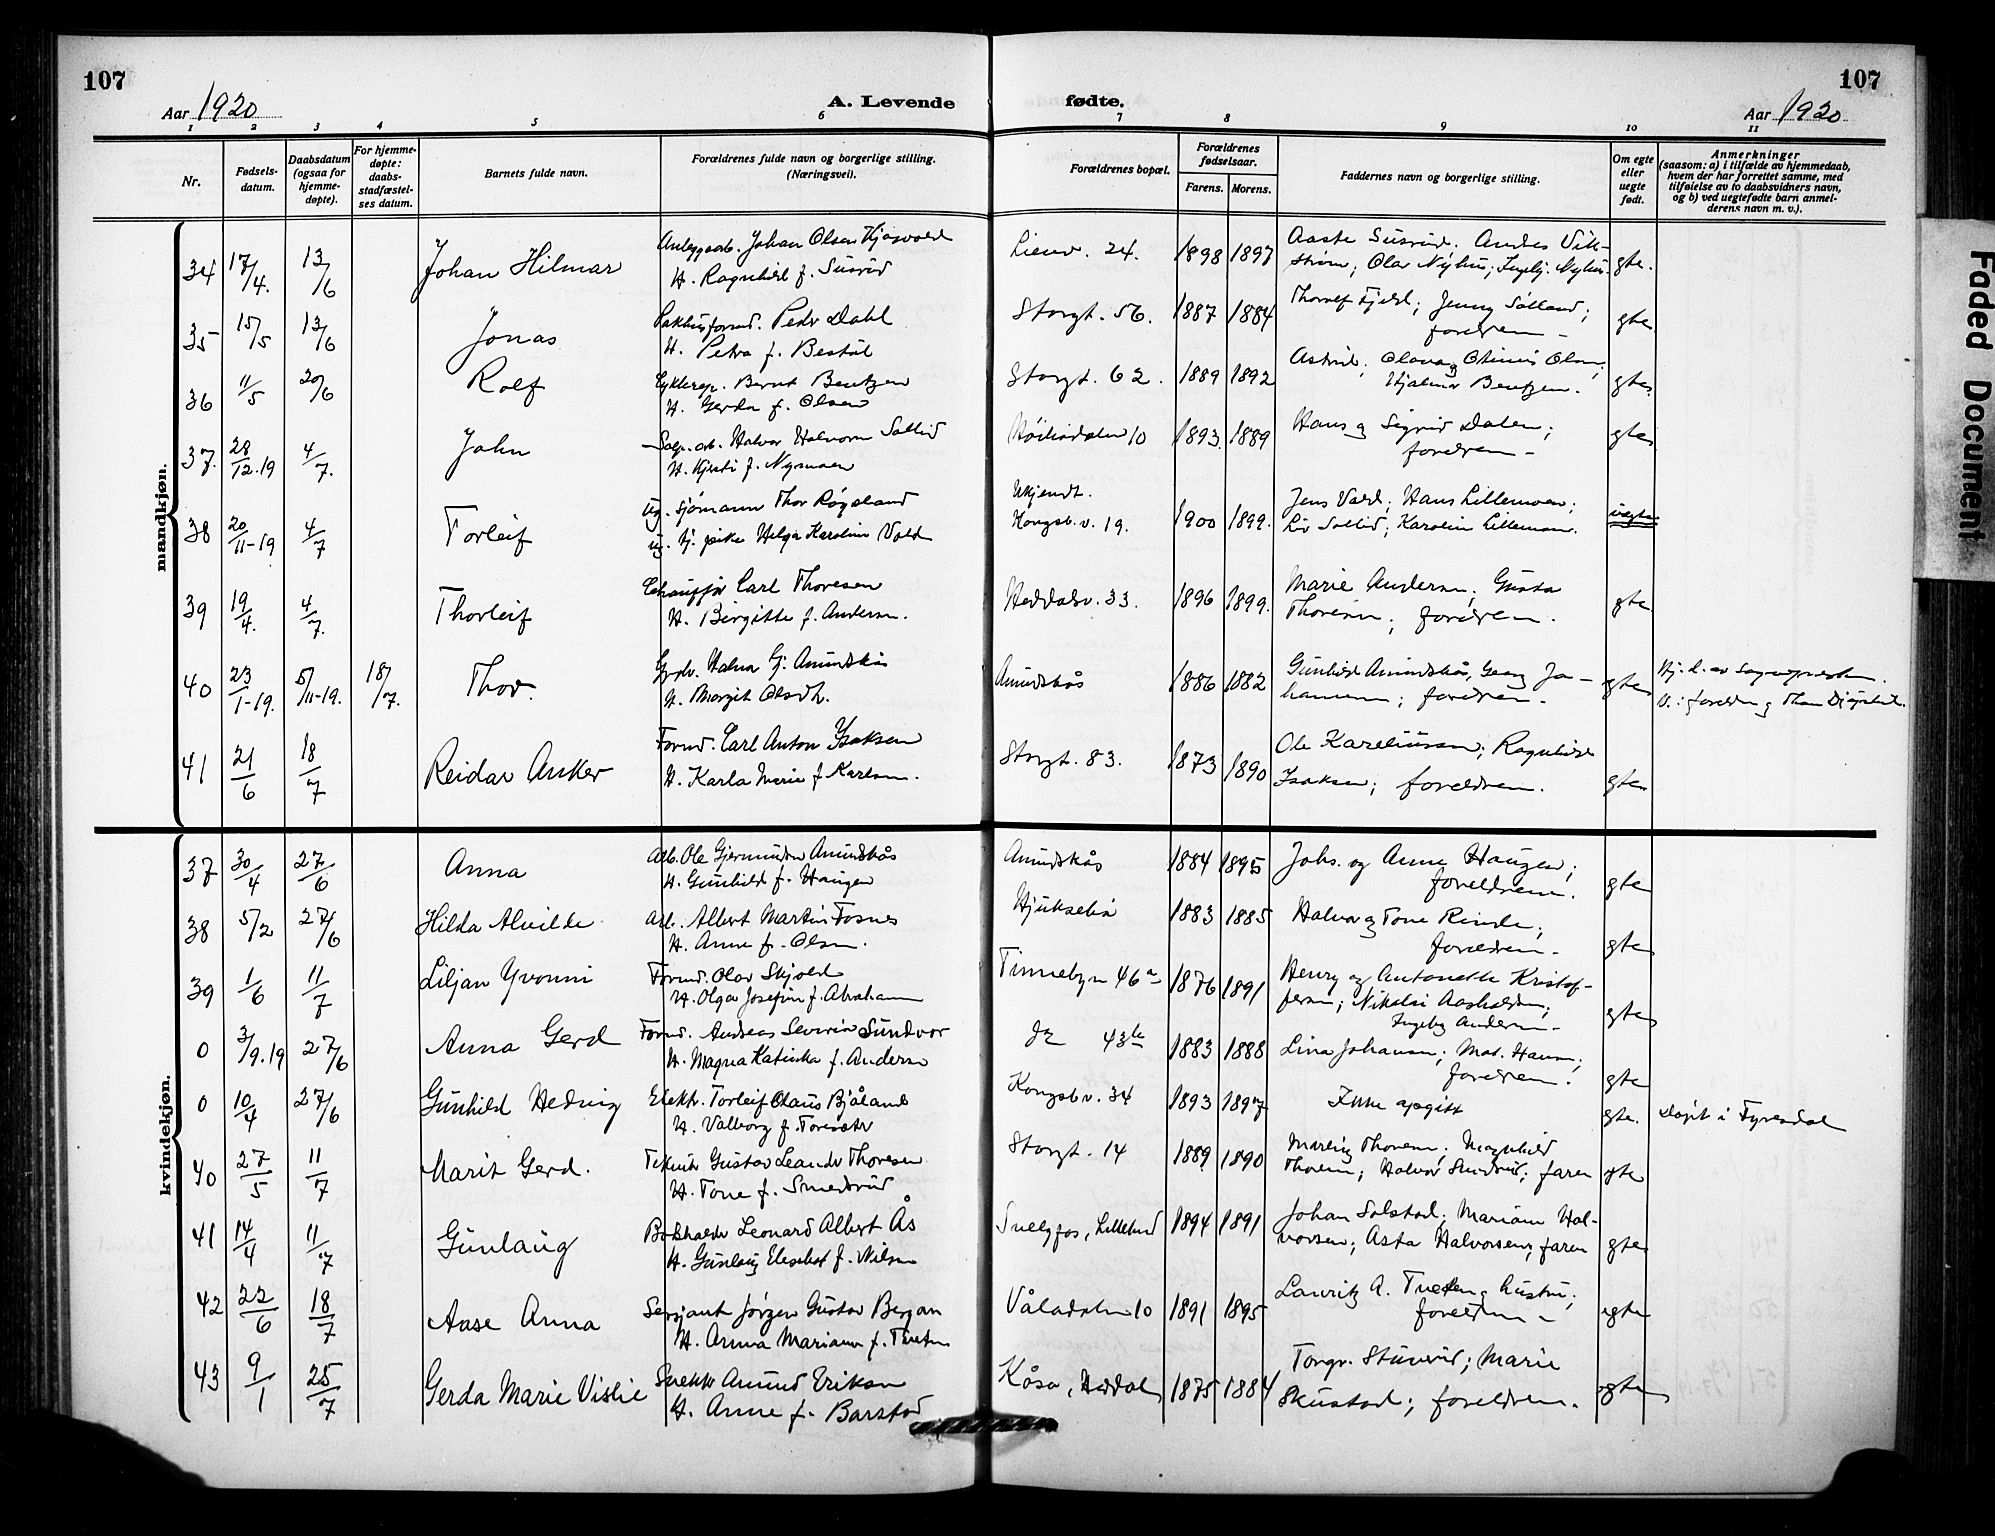 107
107
Aar 1920
A. Levende fødte.
Aar 1920
1 2 3 4 5 6 7 8 9 10 11
Nr.
Fødsels-
datum.
Daabsdatum
(ogsaa for
hjemme-
døpte).
For hjemme-
døpte:
daabs-
stadfæstel-
ses datum.
Barnets fulde navn.
Forældrenes fulde navn og borgerlige stilling.
(Næringsvei).
Forældrenes bopæl.
Forældrenes
fødselsaar.
Farens. Morens.
Faddernes navn og borgerlige stilling.
Om egte
eller
uegte
født.
Anmerkninger
(saasom: a) i tilfælde av hjemmedaab,
hvem der har forrettet samme, med
tilføielse av to daabsvidners navn,
og b) ved uegtefødte barn anmel-
derens navn m. v.).
mandkjøn.
34 17/4. 13/6 Johan Hilmar Johan Olsen 24. 1898 1897 Aaste Susrud. Andres Vik-
H. Ragnhild f. Susrud strøm; Olav Nyhus; Ingebj. Nyhus. gte.
35 15/5 13/6 Jonas Peder Dahl Storgt. 56. 1887 1884 Thorleif Fjeld; Jenny Solland;
H. Petra f. Bestul foreldrene - gte
36 11/5 20/6 Rolf Bernt Bentzen Storgt. 62. 1889 1892 Astrid, Olava og Olsen;
H. Gerda f. Olsen Hjalmar Bentzen. gte
37. 28/12.19 4/7. John Halvor Halvorsen Sollid 10 1893 1889 Hans og Sigrid Dalen;
H. Kjersti f. Nymoen foreldrene - gte
38 20/11-19 4/7 Torleif ug. sjømann Thor Røysland Ukjendt. 1900 1899. Jens Vold; Hans Lillemoen;
ug. tj. pike Helga Karoline Vold Kongsb.v. 19. Liv Sollid; Karoline Lillemoen. uegte
39 19/4. 4/7. Thorleif Chauffør Carl Thoresen Heddalsv. 33. 1896 1899. Marie Andersen; Gusta
H. Birgitte f. Andersen. Thoresen; foreldrene. gte
40 23/1-19. 5/11-19. 18/7. Thor. Halvor Gj. Amundskås Amundskås 1886 1882 Gunhild Amundskås, Georg Jo-
H. Margit Olsdt. hannesen; foreldrene. gte Hj. d. av Sogneprest
V.: foreldre og
41 21/6 18/7 Reidar Anker Formd. Carl Anton Isaksen Storgt. 83. 1873 1890 Ole Kareliussen; Ragnhild
H. Karla Marie f. Karlsen. Isaksen; foreldrene. gte
kvindekjøn.
37 30/4 27/6 Anna Arb. Ole Gjermundsen Amundskås Amundskås 1884 1895 Johs. og Anne Haugen;
H. Gunhild f. Haugen foreldrene. gte
38 5/2 27/6 Hilda Alvilde Arb. Albert Martin Fosnes Hjuksebø 1883 1885 Halvor og Tone Rinde;
H. Anne f. Olsen. foreldrene - gte
39 1/6 11/7 Liljan Yvonni Formd. Olav Skjold Tinnebyen 46a 1876 1891 Henry og Antonette Kristof-
H. Olga Josefine f. Abrahamsen fersen; Nikolai Aasholdsen;
Ingeborg Andersen - gte
0 3/9.19 27/6 Anna Gerd Formd. Andreas Severin Sundvor do 43b 1883 1888 Lina Johansen; Mat. Hansen;
H. Magna Katinka f. Andersen foreldrene. gte
0 10/4 27/6 Gunhild Hedvig Elektr. Torleif Olaus Bjåland Kongsb.v. 34 1893 1897 Ikke opgitt gte. Døpt i Fyresdal
H. Valborg f. Toresæter
40 27/5 11/7 Marit Gerd. Gustav Leander Thoresen Storgt. 14 1889 1890 Thoresen; Magnhild
H. Tone f. Smedsrud Thoresen; Halvor Smedsrud; faren gte
41 14/4 11/7 Gunlaug Bokholder Leonard Albert Ås Svelgfos, Lilleherad 1894 1891 Johan Solstad; Mariane Hal-
H. Gunlaug Elisabet f. Nilsen vorsen; Asta Halvorsen; faren gte
42 22/6 18/7 Aase Anna Sersjant Jørgen Gustav Bergan Våladalen 10 1891 1895 Lauritz A. Tveten og hustru;
H. Anna Mariane f. Tveten foreldrene - egte
43 9/1 25/7 Gerda Marie Vislie Snekker Amund Eriksen Kåsa, Heddal 1875 1884 Torgr. Stuverud; Marie
H. Anne f. Barstad Skustad; foreldrene. egte
Faded Document